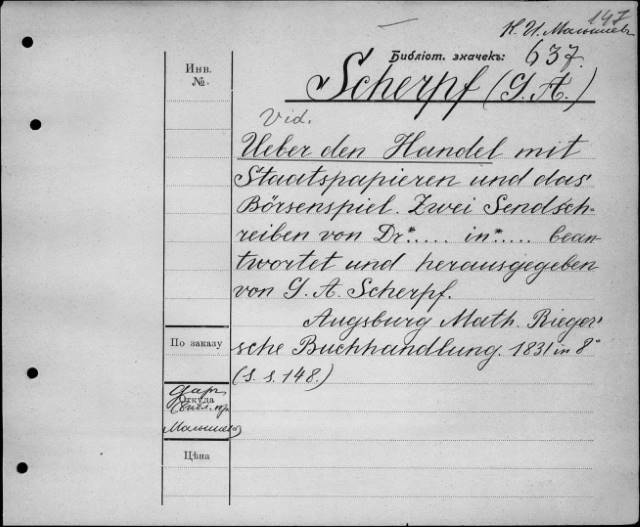 147
К. И. Малышев
Библіот. значекъ: 637.
Инв.
№.
Scherpf (G. A.)
Vid.
Ueber den Handel mit
Staatspapieren und das
Börsenspiel. Zwei Sendsch-
reiben von Dr*..... in*..... bean
twortet und herausgegeben
von G. A. Scherpf.
Augsburg Math. Rieger'
sche Buchhandlung. 1831 in 8°
(S. s. 148.)
По заказу
Откуда
Малышева
Цѣна